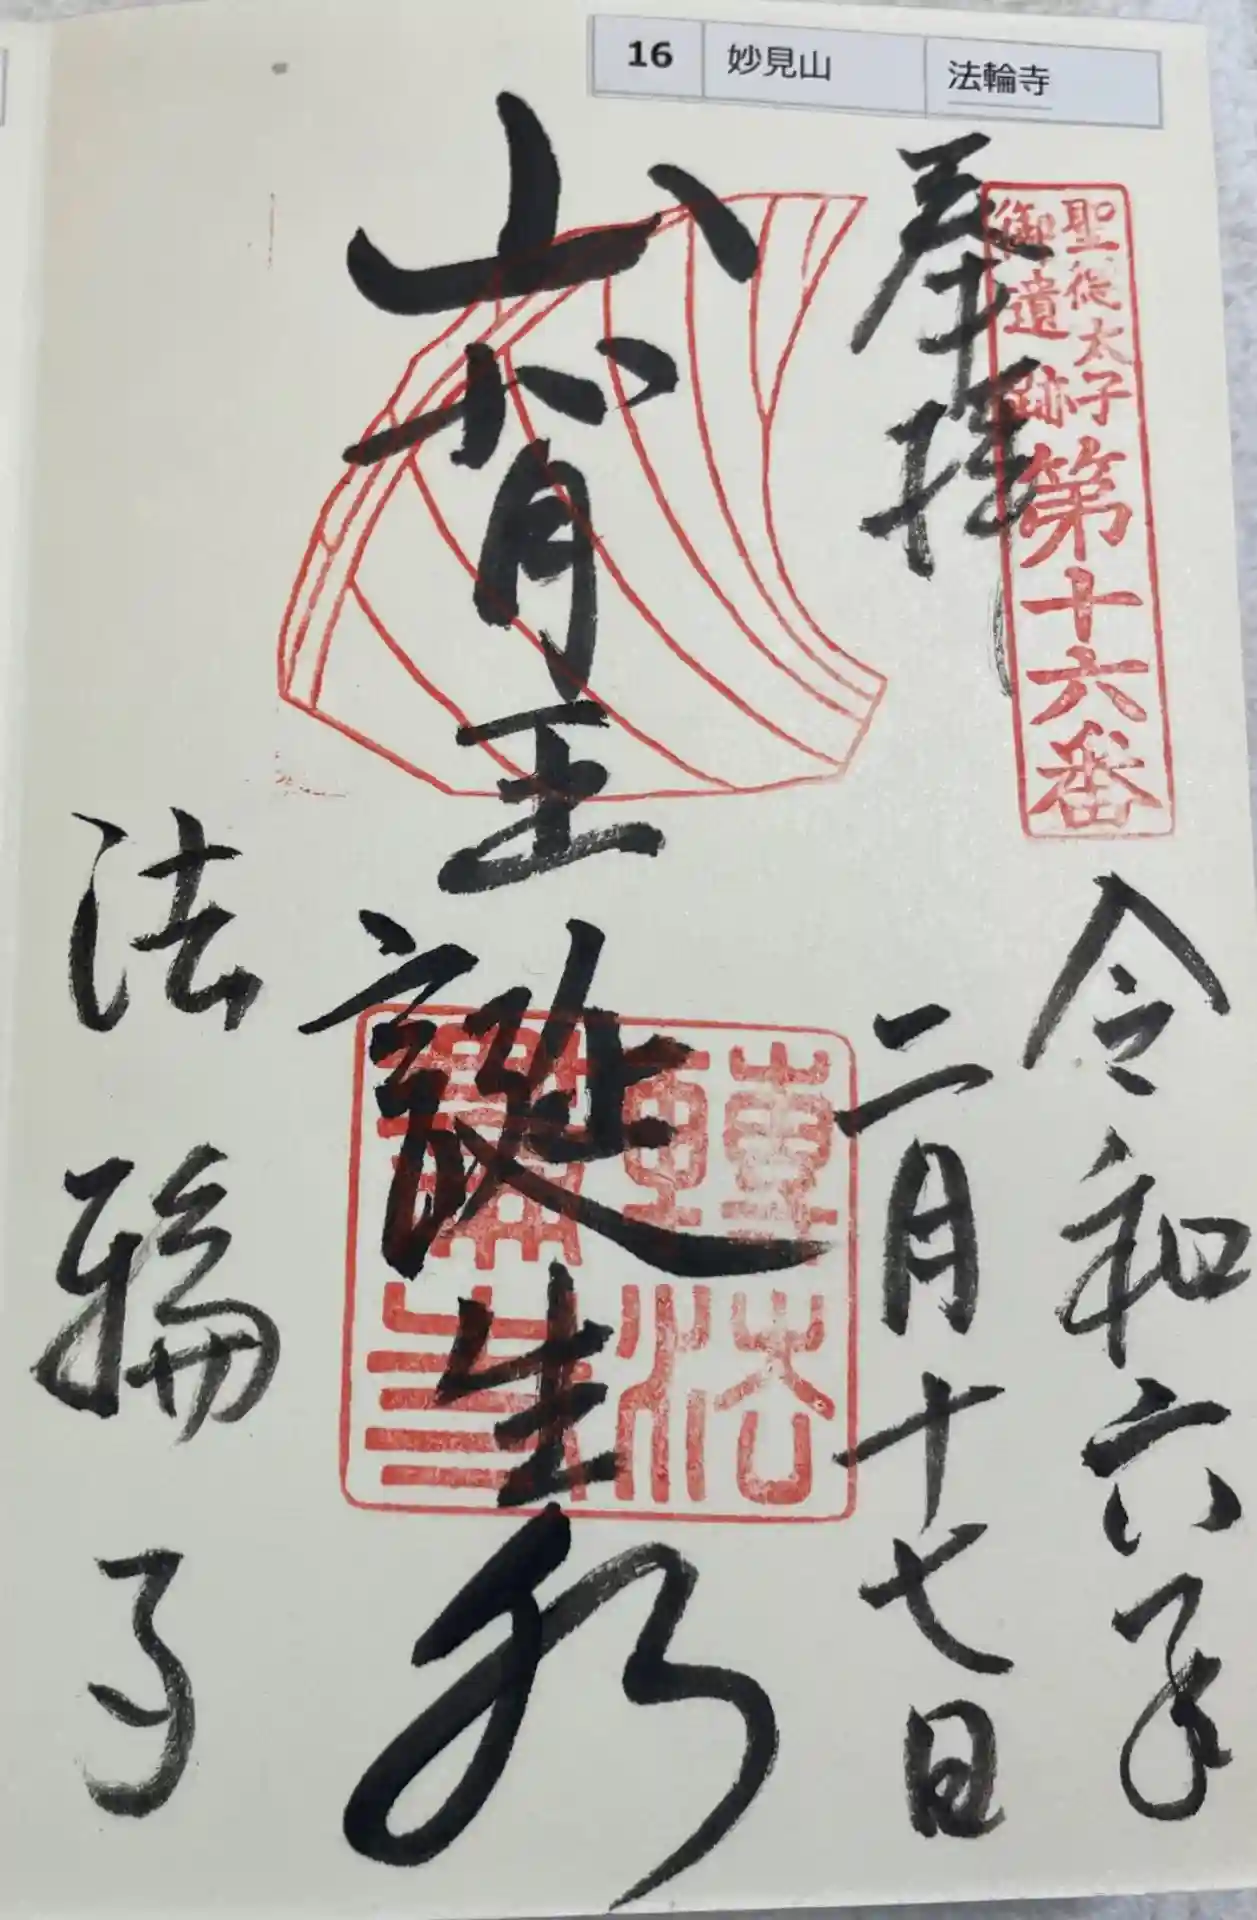 16 妙見山 法輪寺
聖徳太子
御遺跡
第十六番
奉拝
令和六年
二月十七日
山背王誕生水
法輪寺